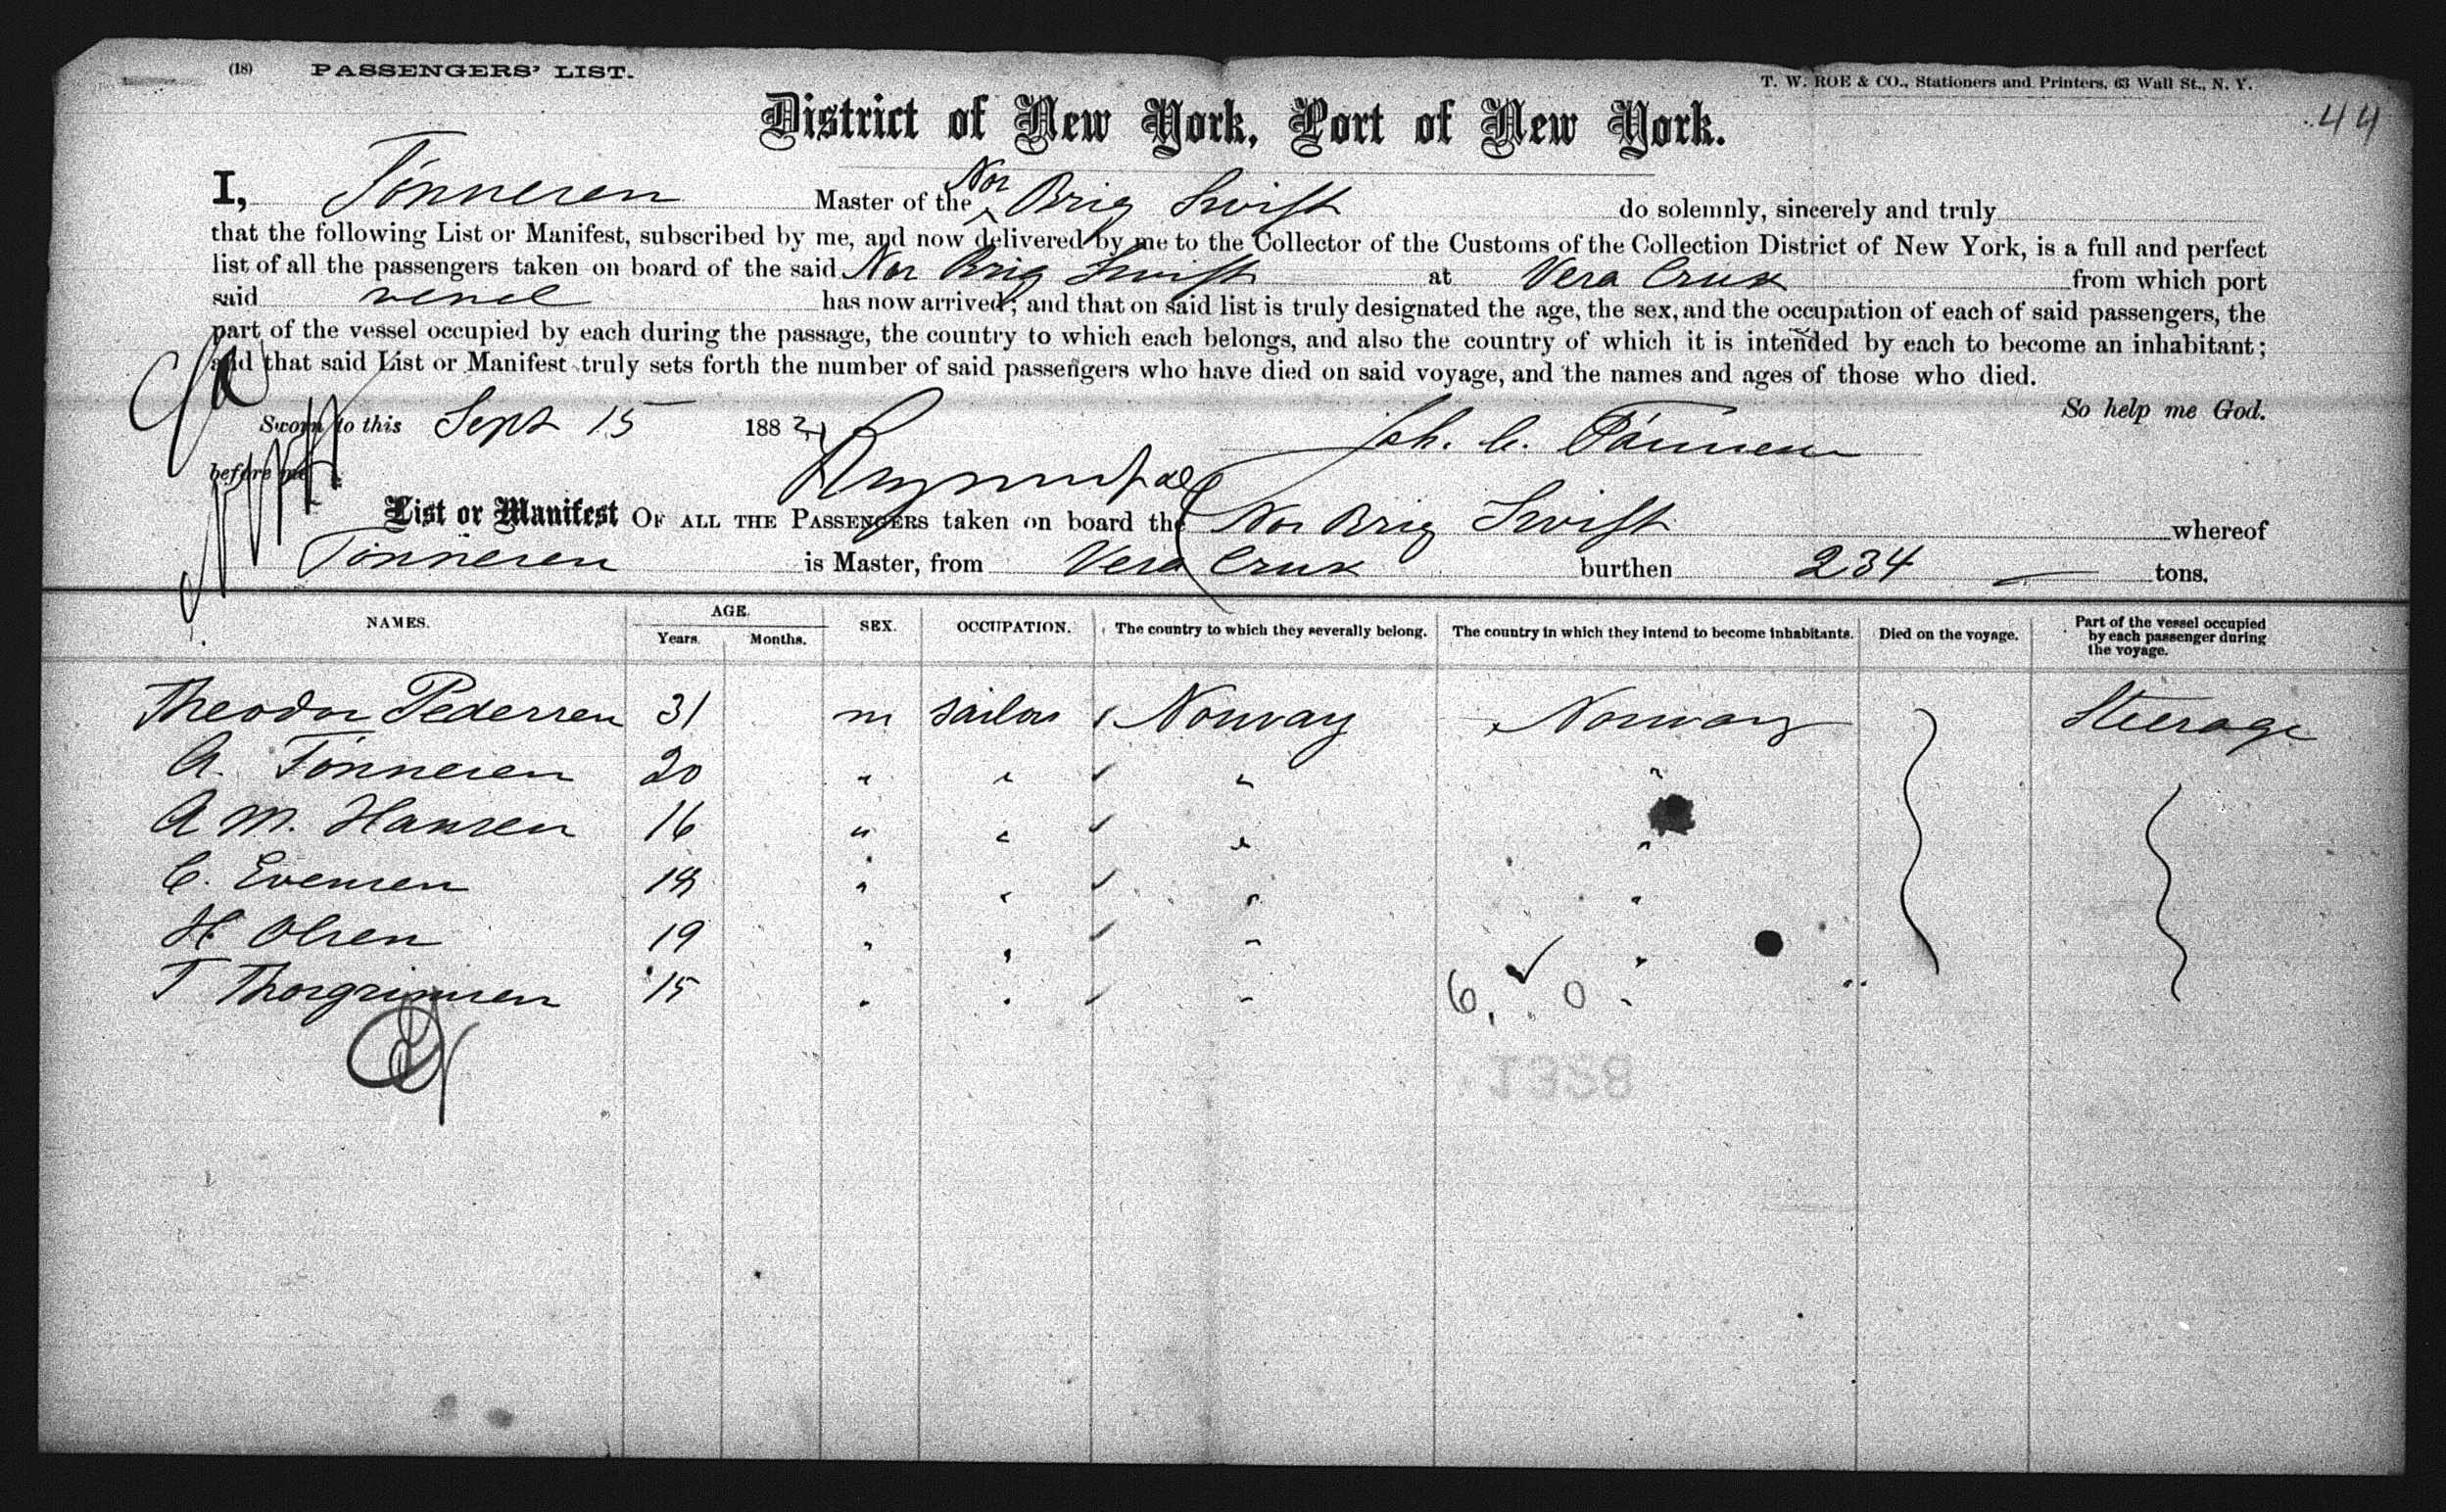 (18) PASSENGERS' LIST.
T. W. ROE & CO., Stationers and Printers, 63 Wall St., N. Y.
44
District of New York, Port of New York.
I, Tönnesen Master of the Nor Brig Swift do solemnly, sincerely and truly
that the following List or Manifest, subscribed by me, and now delivered by me to the Collector of the Customs of the Collection District of New York, is a full and perfect
list of all the passengers taken on board of the said Nor Brig Swift at Vera Crux from which port
said vessel has now arrived; and that on said list is truly designated the age, the sex, and the occupation of each of said passengers, the
part of the vessel occupied by each during the passage, the country to which each belongs, and also the country of which it is intended by each to become an inhabitant;
and that said List or Manifest truly sets forth the number of said passengers who have died on said voyage, and the names and ages of those who died.
So help me God.
Sworn to this Sept 15 188 Joh. C. Tönnesen
before me
List or Manifest OF ALL THE PASSENGERS taken on board the Nor Brig Swift whereof
Tönnesen is Master, from Vera Crux burthen 234 tons.
NAMES. AGE. Years. Months. SEX. OCCUPATION. The country to which they severally belong. The country in which they intend to become inhabitants. Died on the voyage. Part of the vessel occupied by each passenger during the voyage.
Theodor Pedersen 31 m sailor Norway Norway Steerage
A. Tönnesen 20 " " " "
A M. Hansen 16 " " " "
C. Evensen " " " "
H Olsen 19 " " " "
T Thorgrimsen 15 " " " 6 ✓ 0 "
1328